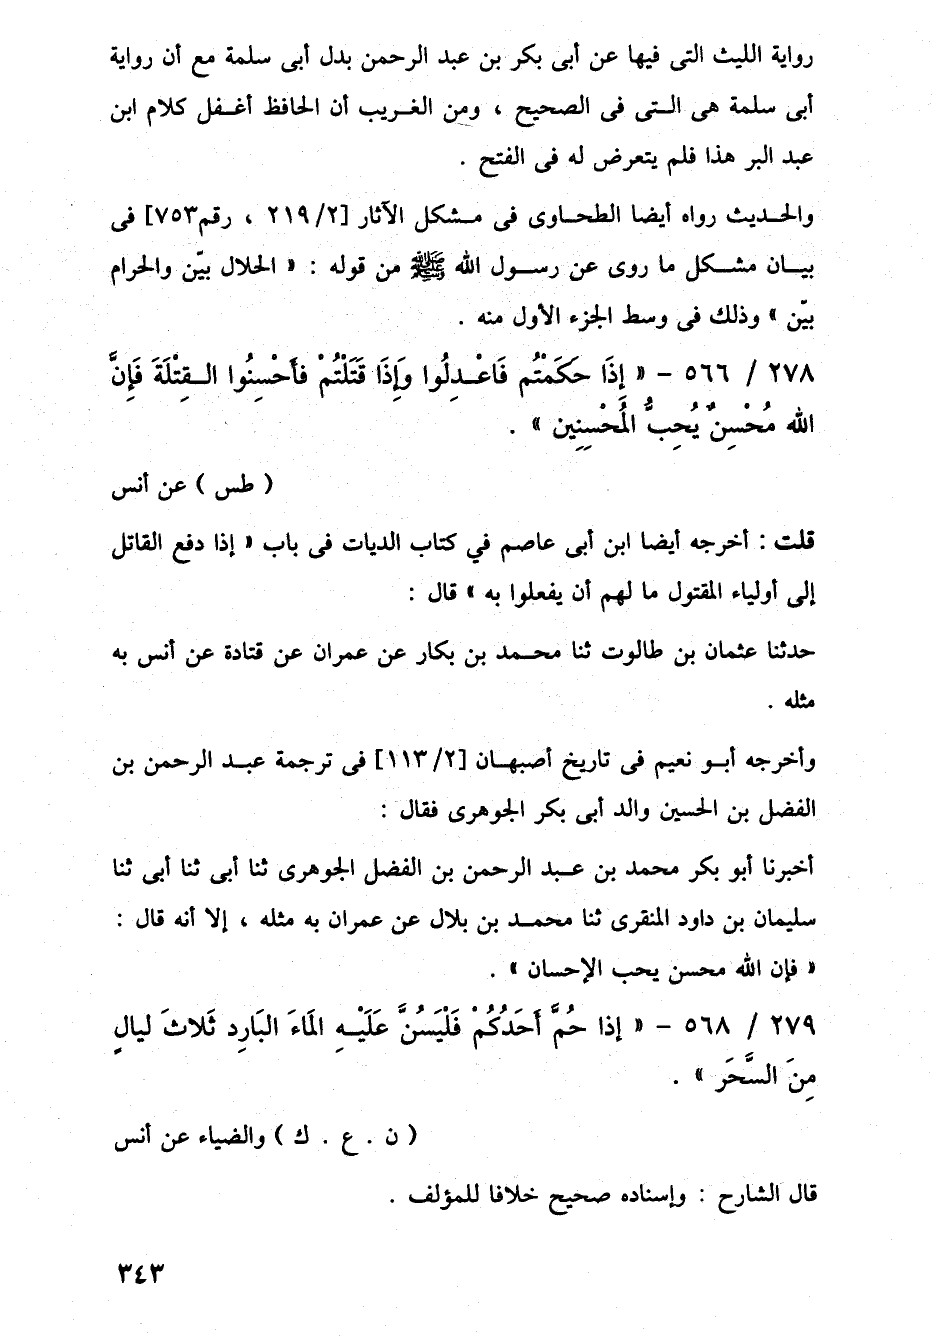 رواية الليث التى فيها عن أبى بكر بن عبد الرحمن بدل أبى سلمة مع أن رواية
أبى سلمة هى الـتـى فى الصحيح ، ومن الغـريب أن الحافظ أغـفـل كلام ابن
عبد البر هذا فلم يتعرض له فى الفتح .
والحـديث رواه أيضا الطحـاوى فى مـشكل الآثار [٢١٩/٢ ، رقم٧٥٣] فى
بيـان مشـكل ما روى عن رسـول الله ﷺ من قوله : « الحلال بيّن والحرام
بيّن » وذلك فى وسط الجزء الأول منه .
٢٧٨ / ٥٦٦ – « إِذَا حَكَمْتُم فَاعْـدِلُوا وَإِذَا قَتَلْتُمْ فأَحْسِنُوا الـقِتْلَةَ فَإِنَّ
الله مُحْسِنٌ يُحِبُّ المُحْسِنِين » .
( طس ) عن أنس
قلت : أخرجه أيضا ابن أبى عاصم في كتاب الديات فى باب « إذا دفع القاتل
إلى أولياء المقتول ما لهم أن يفعلوا به » قال :
حدثنا عثمان بن طالوت ثنا محـمد بن بكار عن عمران عن قتادة عن أنس به
مثله .
وأخرجه أبـو نعيم فى تاريخ أصبهـان [١١٣/٢] فى ترجمة عبـد الرحمن بن
الفضل بن الحسين والد أبى بكر الجوهرى فقال :
أخبرنا أبو بكر محمد بن عـبد الرحمن بن الفضل الجوهرى ثنا أبى ثنا أبى ثنا
سليمان بن داود المنقرى ثنا محمـد بن بلال عن عمران به مثله ، إلا أنه قال :
« فإن الله محسن يحب الإحسان » .
٢٧٩ / ٥٦٨ – « إذا حُمَّ أَحَدُكُمْ فَلْيَسُنَّ عَلَيْـهِ المَاءَ البَارِد ثَلاثَ ليالٍ
مِنَ السَّحَرِ » .
( ن . ع . ك ) والضياء عن أنس
قال الشارح : وإسناده صحيح خلافا للمؤلف .
٣٤٣